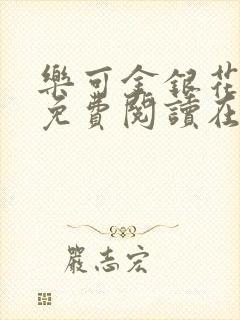 樂可金銀花
免費閱讀在
嚴志宏